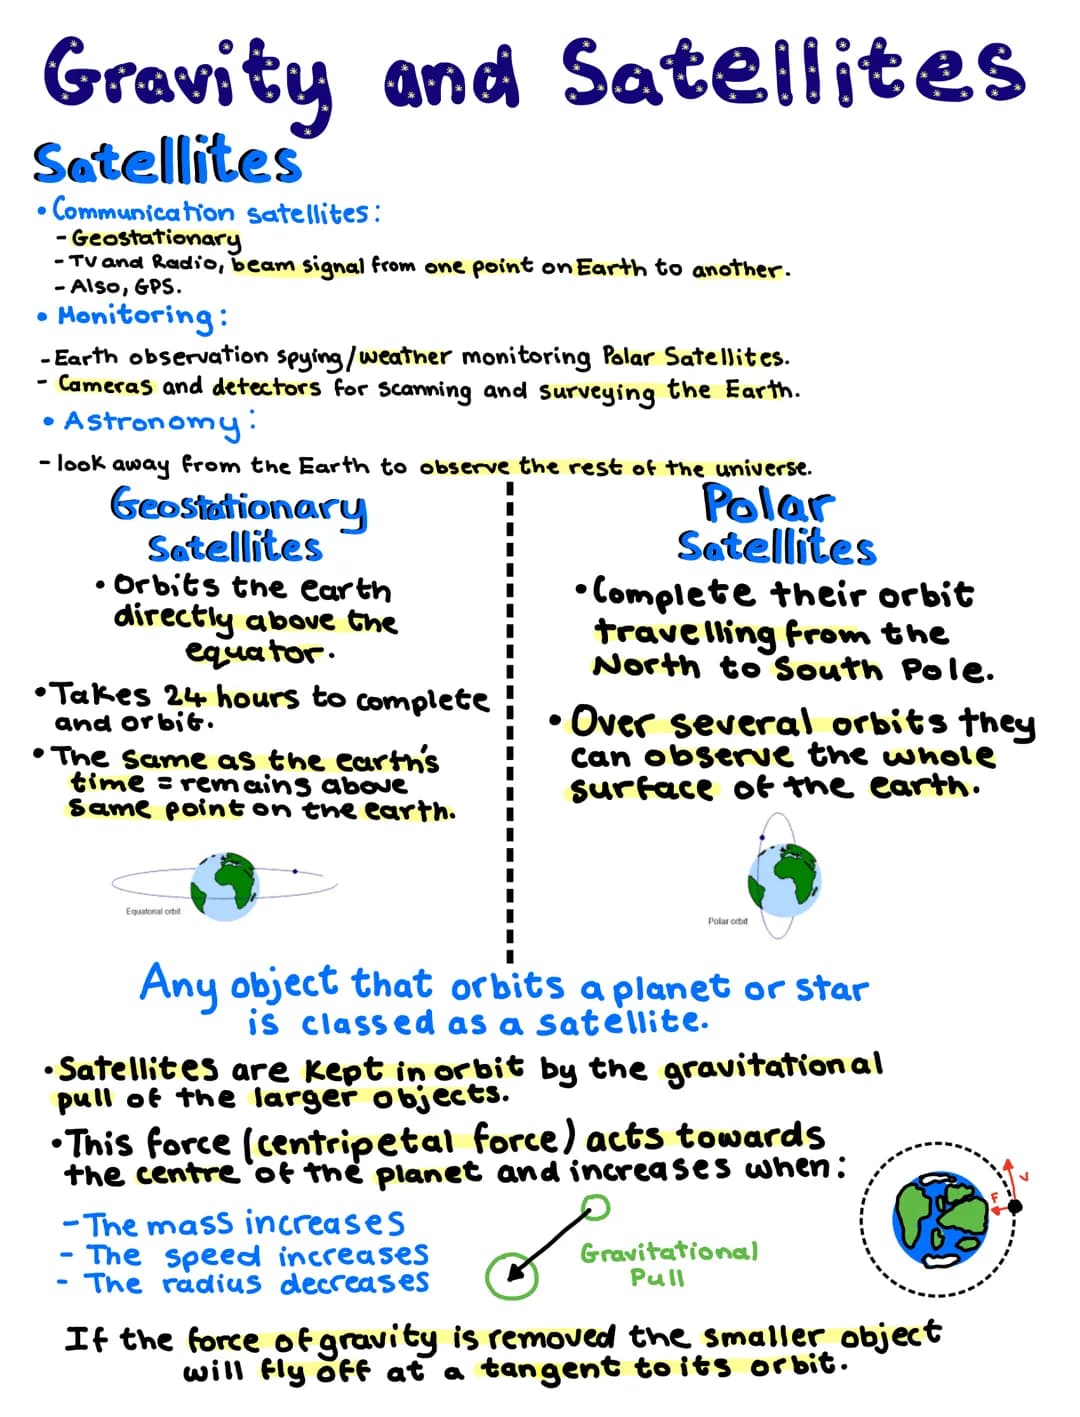 Gravity and Satellites
Satellites
• Communication satellites:
- Geostationary
- TV and Radio, beam signal from one point on Earth to another.
- Also, GPS.
• Monitoring:
- Earth observation spying/weather monitoring Polar Satellites.
- Cameras and detectors for scanning and surveying the Earth.
• Astronomy:
- look away from the Earth to observe the rest of the universe.
Geostationary
Satellites
• Orbits the earth
directly above the
equator.
• Takes 24 hours to complete
and orbit.
• The same as the earth's
time = remains above
same point on the earth.
Equatorial orbit
Polar
Satellites
• Complete their orbit
travelling from the
North to South Pole.
• Over several orbits they
can observe the whole
surface of the earth.
Polar orbit
Any object that orbits a planet or star
is classed as a satellite.
• Satellites are kept in orbit by the gravitational
pull of the larger objects.
• This force (centripetal force) acts towards
the centre of the planet and increases when:
- The mass increases
- The speed increases
- The radius decreases
Gravitational
Pull
F
V
If the force of gravity is removed the smaller object
will fly off at a tangent to its orbit.